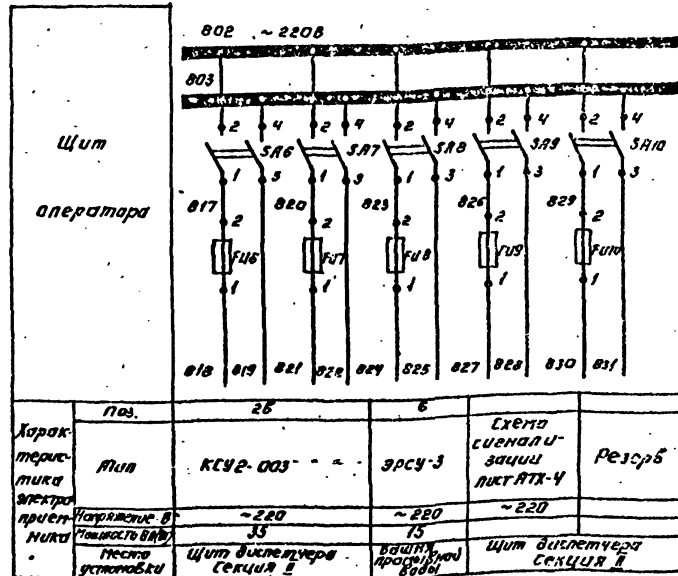 802 ~220В
803
Щит
оператора
2 4 2 4 2 4 2 4 2 4
SA6 SA7 SA8 SA9 SA10
1 3 1 3 1 3 1 3 1 3
817 820 823 826 829
2 2 2 2 2
FU6 FU7 FU8 FU9 FU10
1 1 1 1 1
818 819 821 822 824 825 827 828 830 831
Харак-
терис-
тика
электро-
прием-
ника
Поз. 2б 6
Тип КСУ2-003 ЭРСУ-3 Схема
сигнали-
зации
лист АТХ-4 Резерв
Напряжение В ~220 ~220 ~220
Мощность 35 15
Место
установки Щит диспетчера
Секция II Башня
промывной
воды Щит диспетчера
Секция II